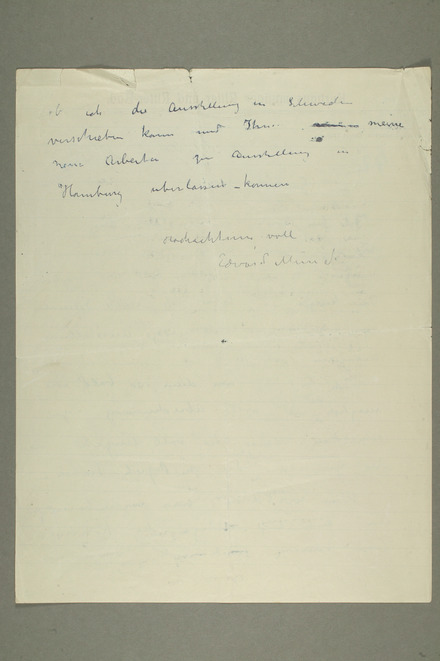 ob ich die Ausstellung in Schweden
verschieben kann und Ihnen meine
neue Arbeiten zur Ausstellung in
Hamburg überlassen können
Hochachtungsvoll
Edvard Munch